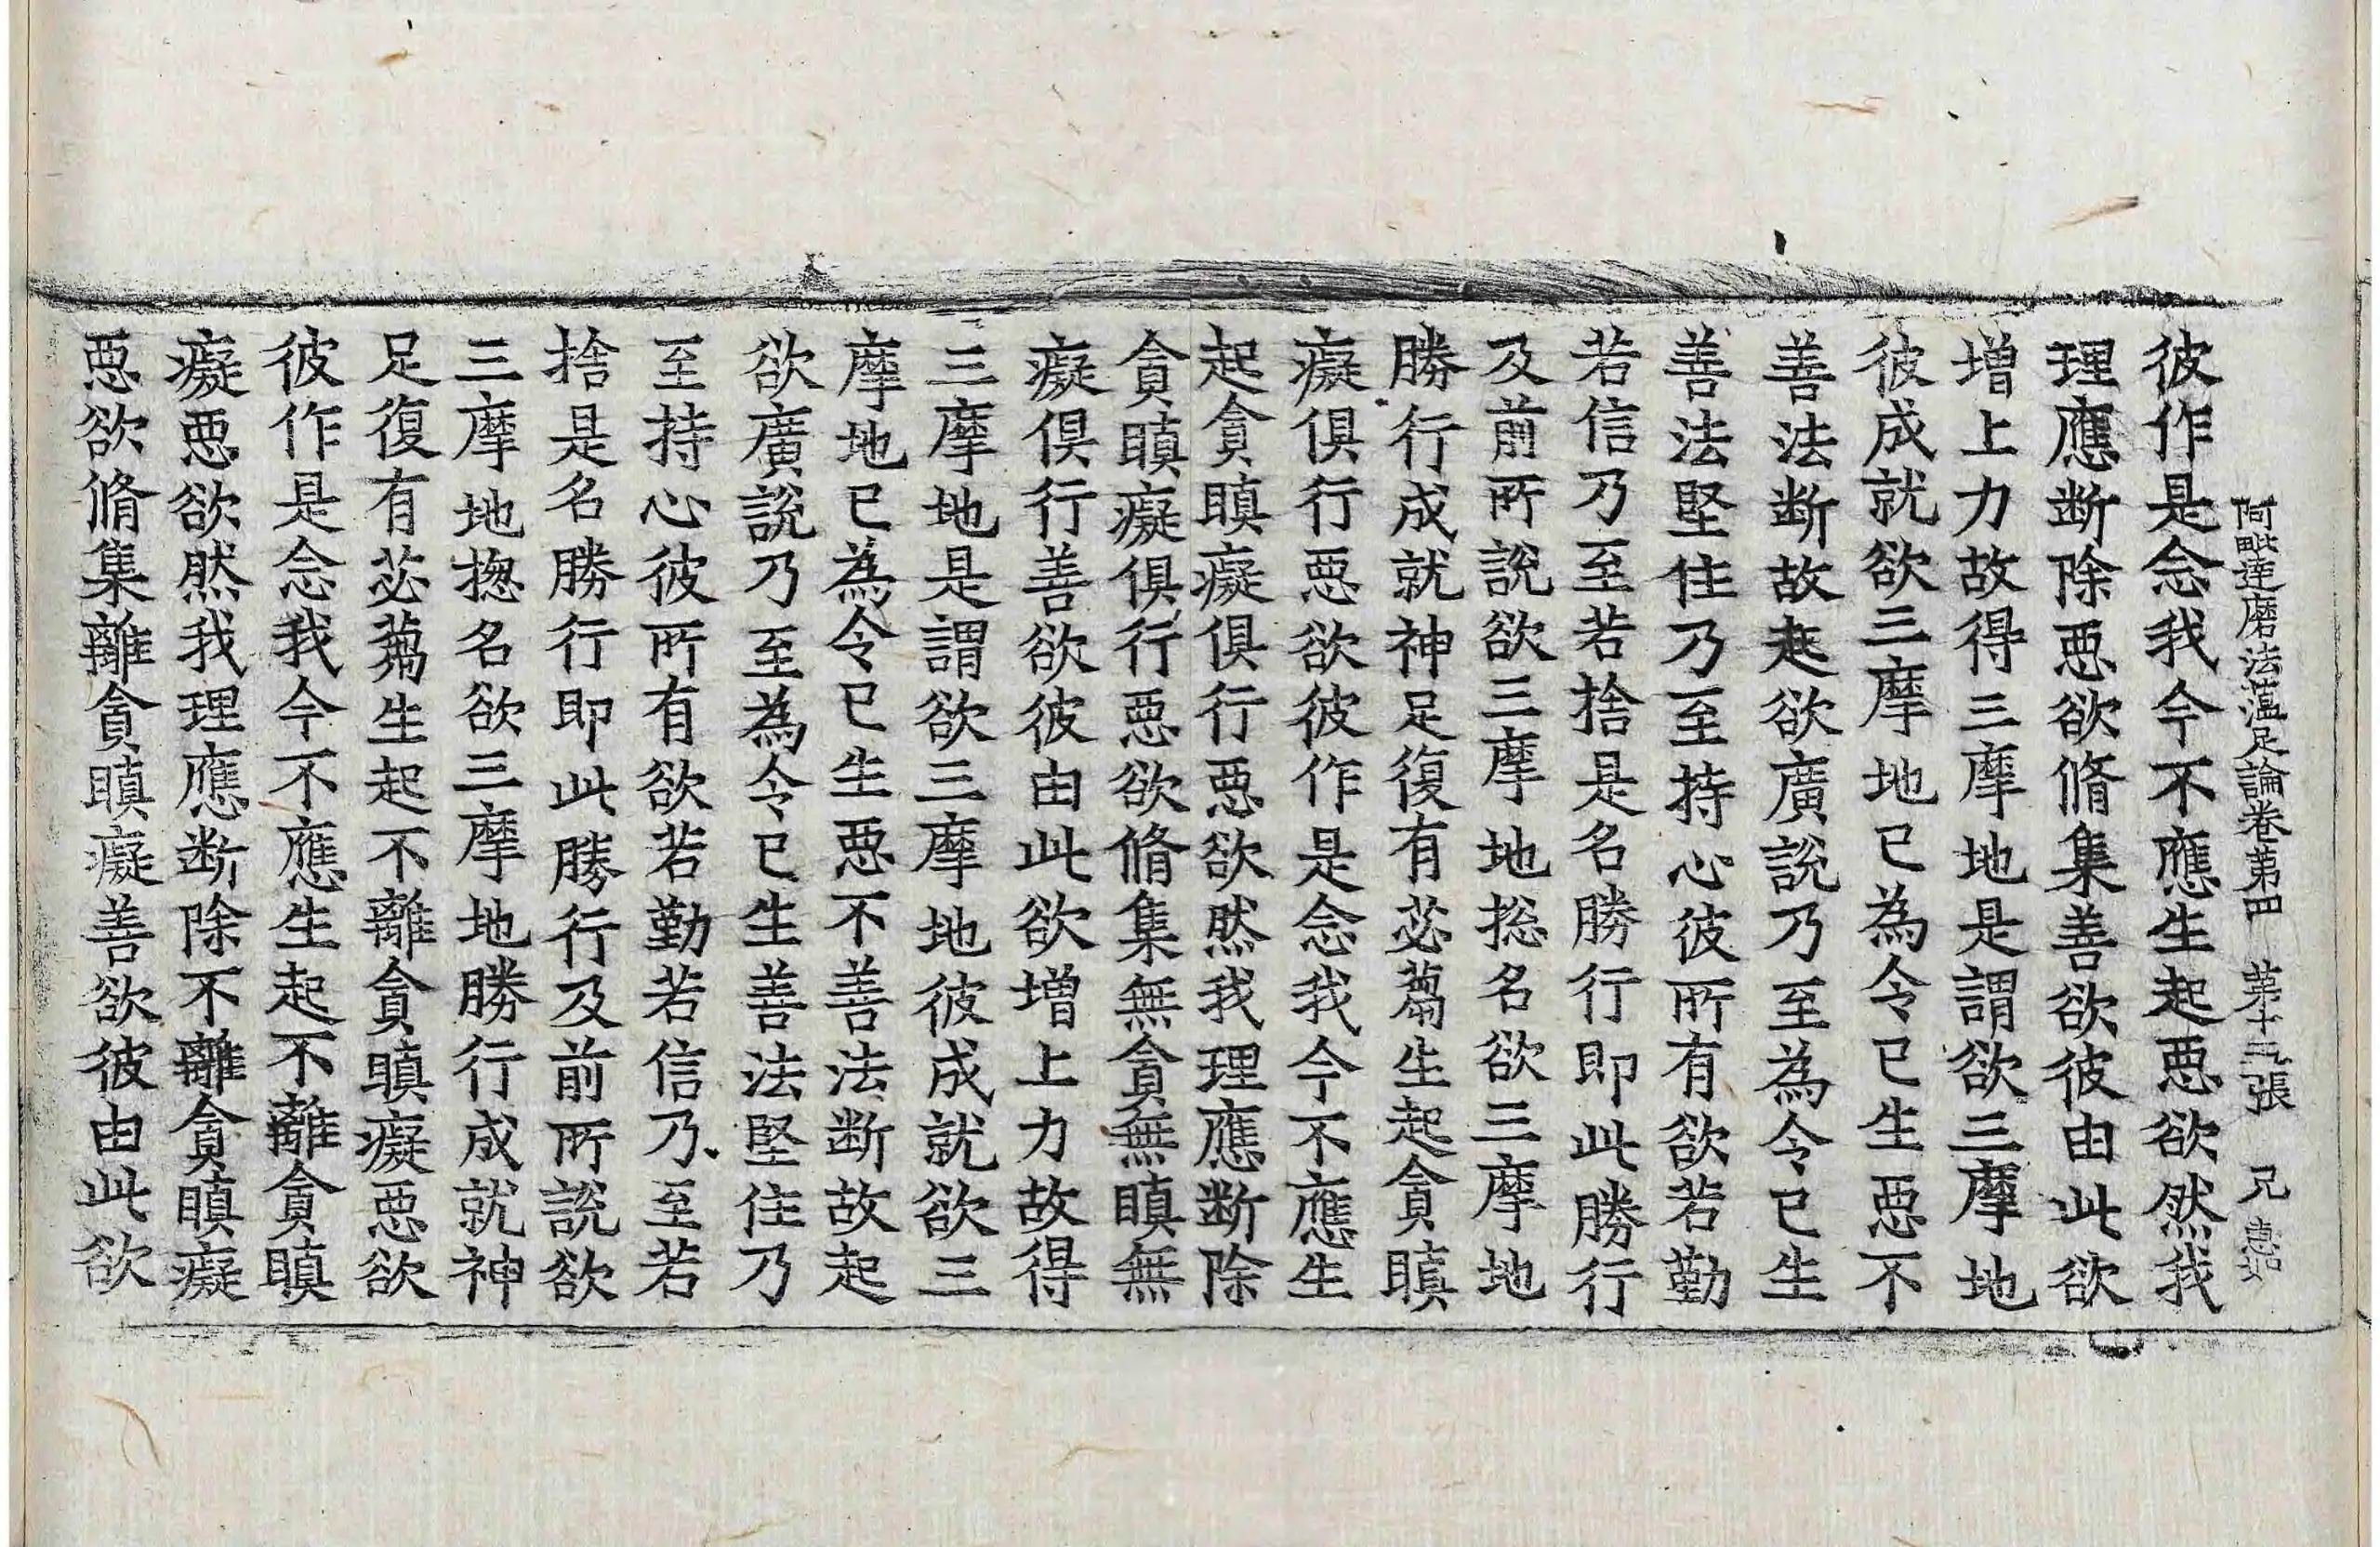 阿毗達磨法蘊足論卷第四 第十二張 兄 惠如
彼作是念我今不應生起惡欲然我
理應断除惡欲脩集善欲彼由此欲
增上力故得三摩地是謂欲三摩地
彼成就欲三摩地已為令已生惡不
善法断故起欲廣說乃至為令已生
善法堅住乃至持心彼所有欲若勤
若信乃至若捨是名勝行即此勝行
及前所說欲三摩地捴名欲三摩地
勝行成就神足復有苾蒭生起貪瞋
癡俱行惡欲彼作是念我今不應生
起貪瞋癡俱行惡欲然我理應断除
貪瞋癡俱行惡欲脩集無貪無瞋無
癡俱行善欲彼由此欲增上力故得
三摩地是謂欲三摩地彼成就欲三
摩地已為令已生惡不善法断故起
欲廣說乃至為令已生善法堅住乃
至持心彼所有欲若勤若信乃至若
捨是名勝行即此勝行及前所說欲
三摩地捴名欲三摩地勝行成就神
足復有苾蒭生起不離貪瞋癡惡欲
彼作是念我今不應生起不離貪瞋
癡惡欲然我理應断除不離貪瞋癡
惡欲脩集離貪瞋癡善欲彼由此欲